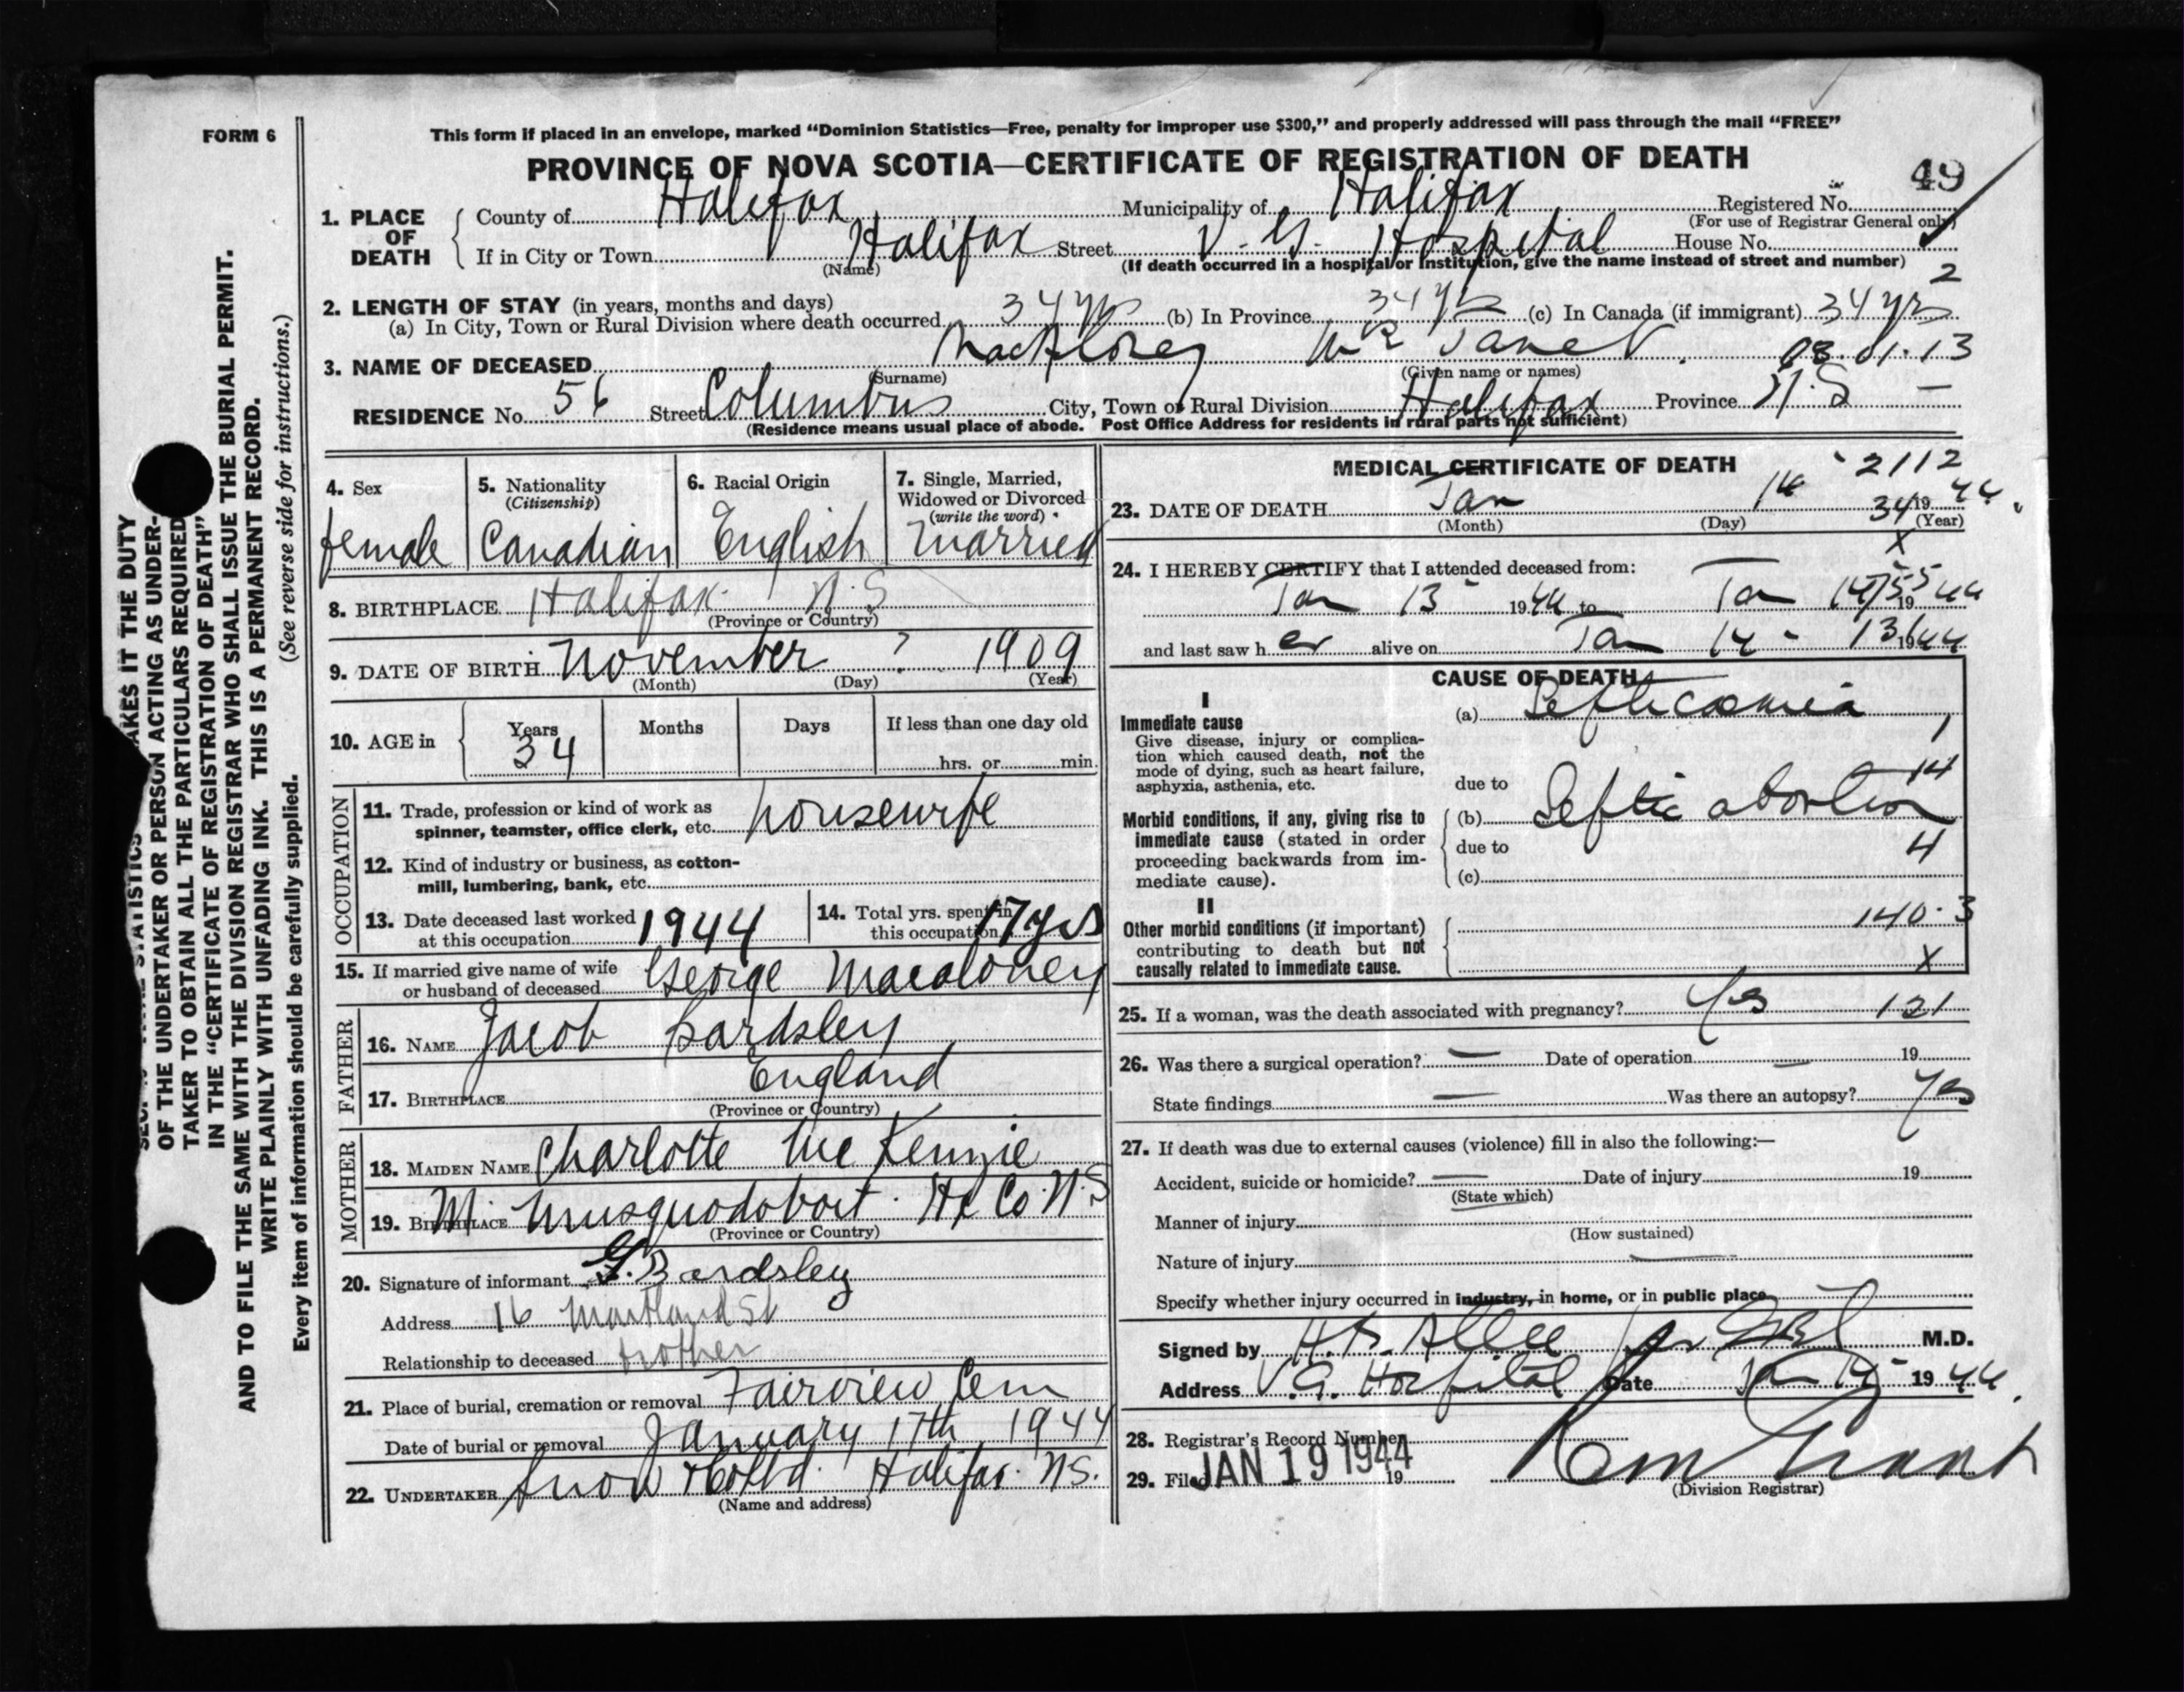 FORM 6
This form if placed in an envelope, marked “Dominion Statistics—Free, penalty for improper use $300,” and properly addressed will pass through the mail “FREE”
PROVINCE OF NOVA SCOTIA—CERTIFICATE OF REGISTRATION OF DEATH
49
1. PLACE OF DEATH
County of Halifax Municipality of Halifax Registered No.
(For use of Registrar General only)
If in City or Town Halifax Street V. G. Hospital House No.
(Name) (If death occurred in a hospital or institution, give the name instead of street and number)
2
2. LENGTH OF STAY (in years, months and days)
(a) In City, Town or Rural Division where death occurred 34 yrs (b) In Province 34 yrs (c) In Canada (if immigrant) 34 yrs
3. NAME OF DECEASED MacAloney Mrs Janet 03.01.13
(Surname) (Given name or names)
RESIDENCE No. 56 Street Columbus City, Town or Rural Division Halifax Province N.S —
(Residence means usual place of abode. Post Office Address for residents in rural parts not sufficient)
4. Sex
female
5. Nationality
(Citizenship)
Canadian
6. Racial Origin
English
7. Single, Married,
Widowed or Divorced
(write the word)
Married
8. BIRTHPLACE Halifax N.S
(Province or Country)
9. DATE OF BIRTH November ? 1909
(Month) (Day) (Year)
10. AGE in Years Months Days If less than one day old
34 hrs. or min.
OCCUPATION
11. Trade, profession or kind of work as
spinner, teamster, office clerk, etc. housewife
12. Kind of industry or business, as cotton-
mill, lumbering, bank, etc.
13. Date deceased last worked
at this occupation 1944
14. Total yrs. spent in
this occupation 17 yrs
15. If married give name of wife
or husband of deceased George Macaloney
FATHER
16. NAME Jacob Bardsley
17. BIRTHPLACE England
(Province or Country)
MOTHER
18. MAIDEN NAME Charlotte McKenzie
19. BIRTHPLACE M. Musquodoboit. Hx Co. N.S
(Province or Country)
20. Signature of informant G. Bardsley
Address 16 Maitland St
Relationship to deceased brother
21. Place of burial, cremation or removal Fairview Cem
Date of burial or removal January 17th 1944
22. UNDERTAKER Snow & Co Ltd. Halifax N.S.
(Name and address)
MEDICAL CERTIFICATE OF DEATH
2112
23. DATE OF DEATH Jan 14 19 44
34
(Month) (Day) (Year)
X
24. I HEREBY CERTIFY that I attended deceased from:
Jan 13 1944 to Jan 14 19 44
55
and last saw her alive on Jan 14 - 1944
131
CAUSE OF DEATH
I
Immediate cause
Give disease, injury or complica-
tion which caused death, not the
mode of dying, such as heart failure,
asphyxia, asthenia, etc.
(a) Septicaemia
1
due to
14
Morbid conditions, if any, giving rise to
immediate cause (stated in order
proceeding backwards from im-
mediate cause).
(b) Septic abortion
due to
4
(c)
II
Other morbid conditions (if important)
contributing to death but not
causally related to immediate cause.
140.3
X
25. If a woman, was the death associated with pregnancy? Yes 121
26. Was there a surgical operation? — Date of operation — 19
State findings — Was there an autopsy? Yes
27. If death was due to external causes (violence) fill in also the following:—
Accident, suicide or homicide? — Date of injury 19
(State which)
Manner of injury
(How sustained)
Nature of injury —
Specify whether injury occurred in industry, in home, or in public place
Signed by M.D.
Address V.G. Hospital Date Jan 14 1944.
28. Registrar's Record Number
29. Filed JAN 19 1944 19
(Division Registrar)
OF THE UNDERTAKER OR PERSON ACTING AS UNDER-
TAKER TO OBTAIN ALL THE PARTICULARS REQUIRED
IN THE “CERTIFICATE OF REGISTRATION OF DEATH”
AND TO FILE THE SAME WITH THE DIVISION REGISTRAR WHO SHALL ISSUE THE BURIAL PERMIT.
WRITE PLAINLY WITH UNFADING INK. THIS IS A PERMANENT RECORD.
(See reverse side for instructions.)
Every item of information should be carefully supplied.